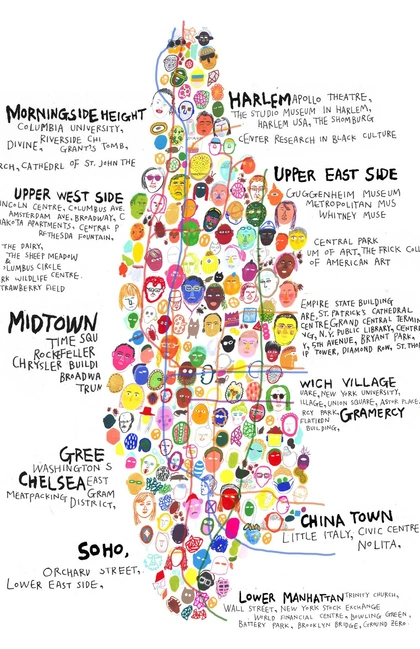 MORNINGSIDE HEIGHT
COLUMBIA UNIVERSITY,
RIVERSIDE CHI
DIVINE, GRANT'S TOMB,
RCH, CATHEDRL OF ST. JOHN THE
HARLEM APOLLO THEATRE,
THE STUDIO MUSEUM IN HARLEM,
HARLEM USA, THE SHOMBURG
CENTER RESEARCH IN BLACK CULTURE
UPPER WEST SIDE
INCOLN CENTRE, COLUMBUS AVE.
AMSTERDAM AVE, BROADWAY, C
AKOTA APARTMENTS, CENTRAL P
BETHESDA FOUNTAIN,
THE DAIRY,
THE SHEEP MEADOW
&
OLUMBUS CIRCLE
RK WILDLIFE CENTRE.
TRAWBERRY FIELD
UPPER EAST SIDE
GUGGENHEIM MUSEUM
METROPOLITAN MUS
WHITNEY MUSE
CENTRAL PARK
UM OF ART, THE FRICK COLL
OF AMERICAN ART
MIDTOWN
TIME SQU
ROCKEFELLER
CHRYSLER BUILDI
BROADWA
TRUM
EMPIRE STATE BUILDING
ARE, ST. PATRICK'S CATHEDRAL
CENTRE, GRAND CENTRAL TERMIN
NG, N.Y. PUBLIC LIBRARY, CENTRE
Y, 5TH AVENUE, BRYANT PARK,
IP TOWER, DIAMOND ROW, ST. THO
WICH VILLAGE
UARE, NEW YORK UNIVERSITY,
ILLAGE, UNION SQUARE, ASTOR PLACE
RCY PARK, GRAMERCY
FLATIRON
BUILDING,
GREE
WASHINGTON S
CHELSEA EAST
MEATPACKING GRAM
DISTRICT,
CHINA TOWN
LITTLE ITALY, CIVIC CENTRE
NOLITA,
SOHO,
ORCHARD STREET,
LOWER EAST SIDE,
LOWER MANHATTAN TRINITY CHURCH,
WALL STREET, NEW YORK STOCK EXCHANGE
WORLD FINANCIAL CENTRE, BOWLING GREEN,
BATTERY PARK, BROOKLYN BRIDGE, GROUND ZERO.